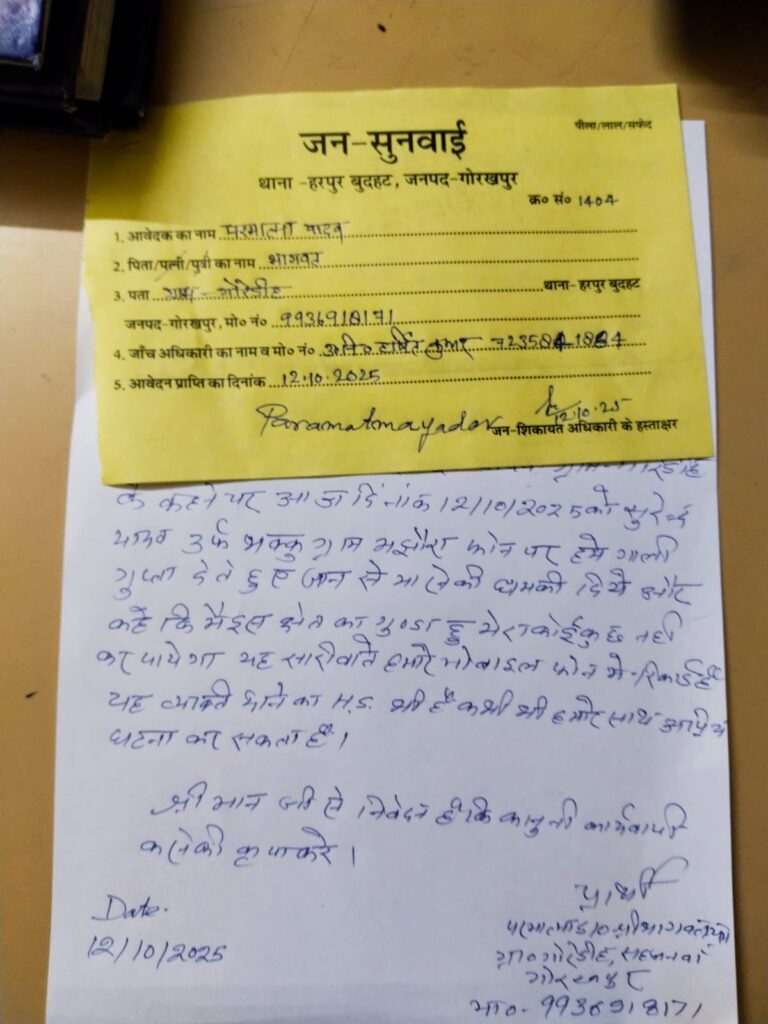 पीला/लाल/सफेद
जन-सुनवाई
थाना -हरपुर बुदहट, जनपद-गोरखपुर
क्र० सं० 1404
1. आवेदक का नाम परमात्मा यादव
2. पिता/पत्नी/पुत्री का नाम भागवत
3. पता ग्राम - गोरेडीह थाना-हरपुर बुदहट
जनपद-गोरखपुर, मो० नं० 9936918171
4. जाँच अधिकारी का नाम व मो० नं० कुमार
5. आवेदन प्राप्ति का दिनांक 12.10.2025
12.10.25
Paramatmayadav जन-शिकायत अधिकारी के हस्ताक्षर
के कहने पर आज दिनांक 12/10/2025 को सुरेन्द्र
यादव उर्फ भक्कु ग्राम मझौरा फोन पर हमे गाली
गुप्ता देते हुए जान से मारने की धमकी दिये और
कहे कि मैं इस क्षेत्र का गुण्डा हु मेरा कोई कुछ नही
कर पायेगा यह सारी बाते हमारे मोबाइल फोन मे रिकार्ड है
यह व्यक्ति थाने का H.S. भी है कभी भी हमारे साथ अप्रिय
घटना कर सकता है।
श्री मान जी से निवेदन है कि कानुनी कार्यवाही
करने की कृपा करे।
प्रार्थी
Date.
12/10/2025
ग्रा० गोरेडीह, सहजनवां
गोरखपुर
मो०- 9936918171